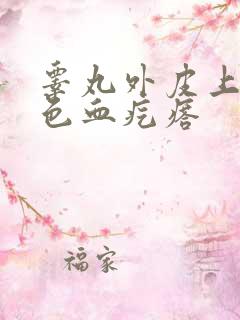 睾丸外皮上
色血疙瘩
福家